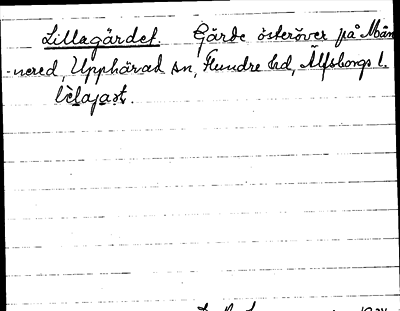 Lillagärdet. Gärde österöver på Män
-nered, Upphärad sn, Flundre hd, Älfsborgs l.